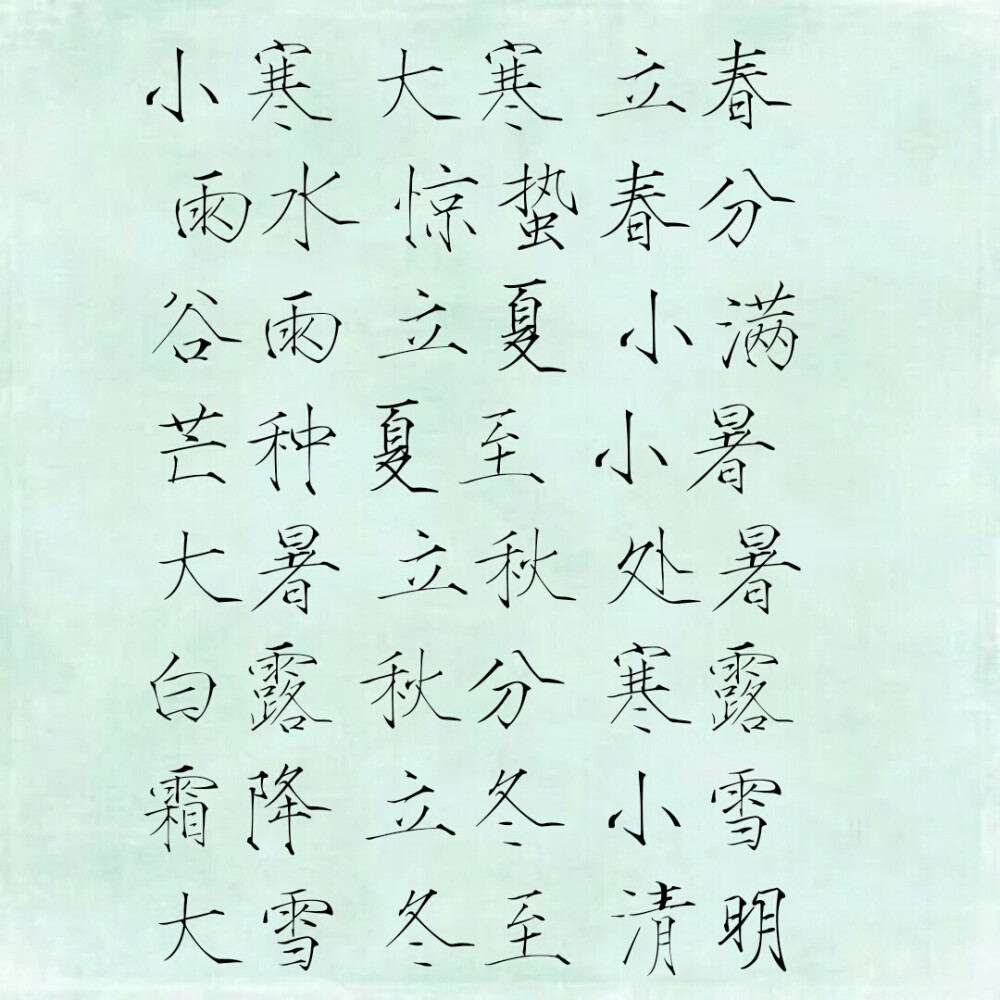 小寒 大寒 立春
雨水 惊蛰 春分
谷雨 立夏 小满
芒种 夏至 小暑
大暑 立秋 处暑
白露 秋分 寒露
霜降 立冬 小雪
大雪 冬至 清明